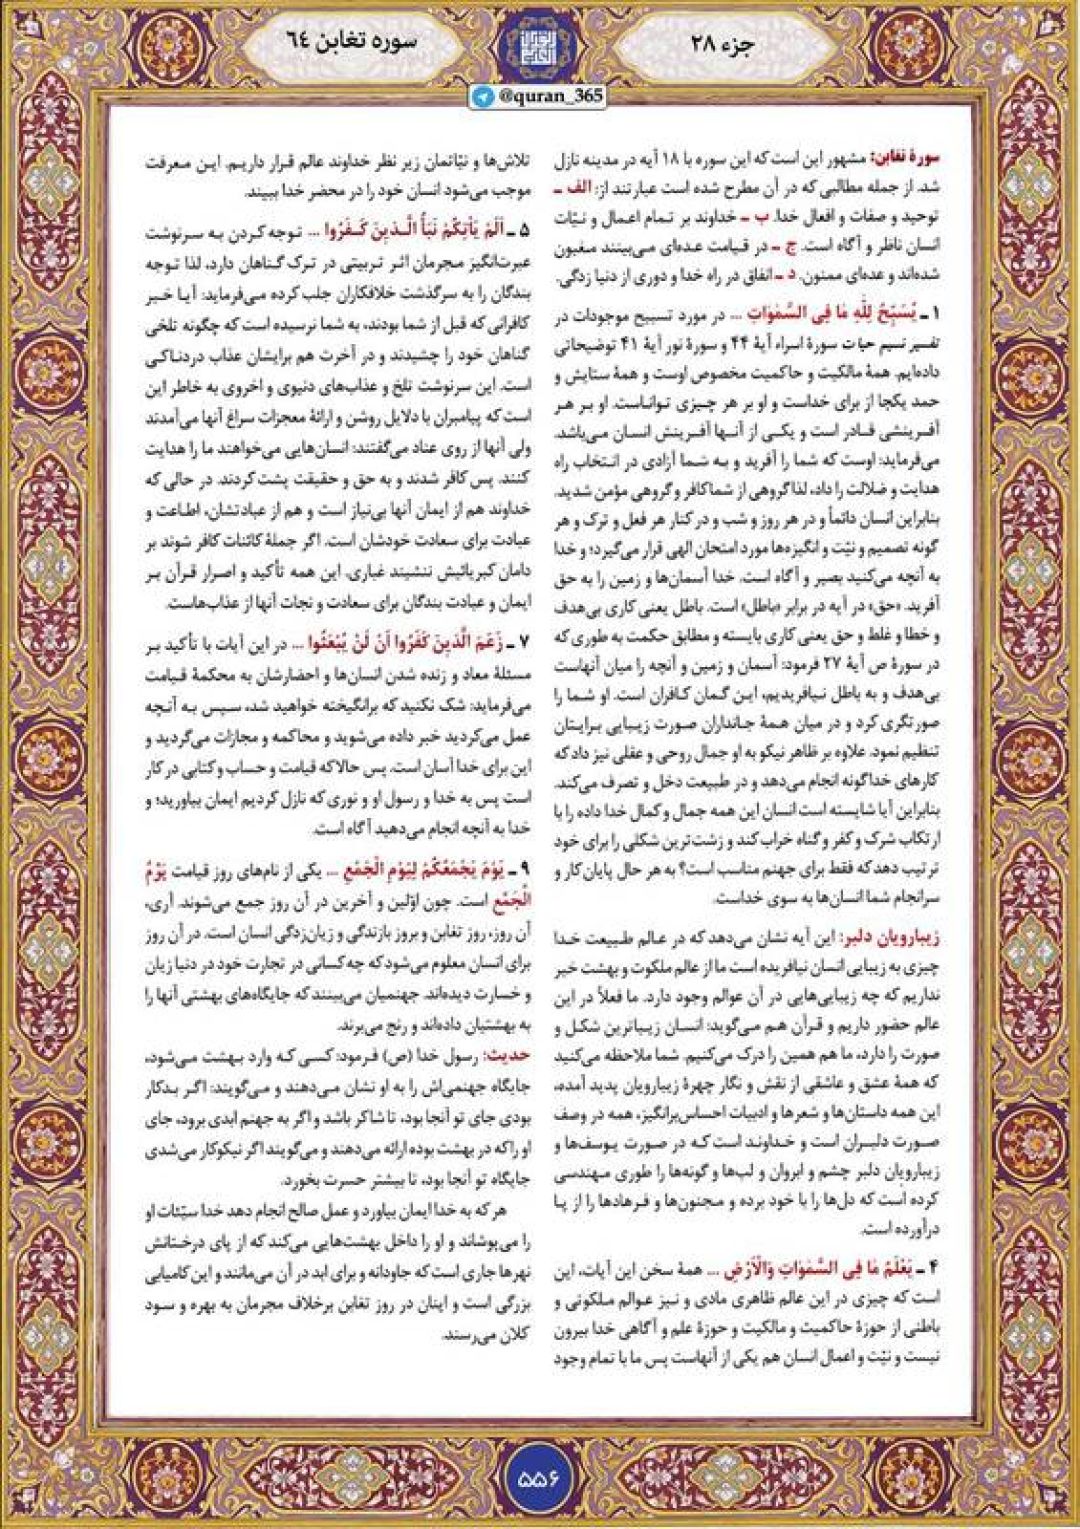 جزء ۲۸
سوره تغابن ٦٤
@quran_365
سورهٔ تغابن: مشهور این است که این سوره با ۱۸ آیه در مدینه نازل
شد. از جمله مطالبی که در آن مطرح شده است عبارتند از: الف ـ
توحید و صفات و افعال خدا. ب ـ خداوند بر تمام اعمال و نیّات
انسان ناظر و آگاه است. ج ـ در قیامت عده‌ای می‌بینند مغبون
شده‌اند و عده‌ای ممنون. د ـ انفاق در راه خدا و دوری از دنیا زدگی.
۱ ـ یُسَبِّحُ لِلّٰهِ مَا فِی السَّمٰوَاتِ ... در مورد تسبیح موجودات در
تفسیر نسیم حیات سورهٔ اسراء آیهٔ ۴۴ و سورهٔ نور آیهٔ ۴۱ توضیحاتی
داده‌ایم. همهٔ مالکیت و حاکمیت مخصوص اوست و همهٔ ستایش و
حمد یکجا از برای خداست و او بر هر چیزی تواناست. او بر هر
آفرینشی قادر است و یکی از آنها آفرینش انسان می‌باشد.
می‌فرماید: اوست که شما را آفرید و به شما آزادی در انتخاب راه
هدایت و ضلالت را داد، لذا گروهی از شما کافر و گروهی مؤمن شدید.
بنابراین انسان دائماً و در هر روز و شب و در کنار هر فعل و ترک و هر
گونه تصمیم و نیّت و انگیزه‌ها مورد امتحان الهی قرار می‌گیرد؛ و خدا
به آنچه می‌کنید بصیر و آگاه است. خدا آسمان‌ها و زمین را به حق
آفرید. «حق» در آیه در برابر «باطل» است. باطل یعنی کاری بی‌هدف
و خطا و غلط و حق یعنی کاری بایسته و مطابق حکمت به طوری که
در سورهٔ ص آیهٔ ۲۷ فرمود: آسمان و زمین و آنچه را میان آنهاست
بی‌هدف و به باطل نیافریدیم، این گمان کافران است. او شما را
صورتگری کرد و در میان همهٔ جانداران صورت زیبایی برایتان
تنظیم نمود. علاوه بر ظاهر نیکو به او جمال روحی و عقلی نیز داد که
کارهای خداگونه انجام می‌دهد و در طبیعت دخل و تصرف می‌کند.
بنابراین آیا شایسته است انسان این همه جمال و کمال خدا داده را با
ارتکاب شرک و کفر و گناه خراب کند و زشت‌ترین شکلی را برای خود
ترتیب دهد که فقط برای جهنم مناسب است؟ به هر حال پایان کار و
سرانجام شما انسان‌ها به سوی خداست.
زیبارویان دلبر: این آیه نشان می‌دهد که در عالم طبیعت خدا
چیزی به زیبایی انسان نیافریده است ما از عالم ملکوت و بهشت خبر
نداریم که چه زیبایی‌هایی در آن عوالم وجود دارد. ما فعلاً در این
عالم حضور داریم و قرآن هم می‌گوید: انسان زیباترین شکل و
صورت را دارد، ما هم همین را درک می‌کنیم. شما ملاحظه می‌کنید
که همهٔ عشق و عاشقی از نقش و نگار چهرهٔ زیبارویان پدید آمده،
این همه داستان‌ها و شعرها و ادبیات احساس‌برانگیز، همه در وصف
صورت دلبران است و خداوند است که در صورت یوسف‌ها و
زیبارویان دلبر چشم و ابروان و لب‌ها و گونه‌ها را طوری مهندسی
کرده است که دل‌ها را با خود برده و مجنون‌ها و فرهادها را از پا
درآورده است.
۴ ـ یَعْلَمُ مَا فِی السَّمٰوَاتِ وَالْأَرْضِ ... همهٔ سخن این آیات، این
است که چیزی در این عالم ظاهری مادی و نیز عوالم ملکوتی و
باطنی از حوزهٔ حاکمیت و مالکیت و حوزهٔ علم و آگاهی خدا بیرون
نیست و نیّت و اعمال انسان هم یکی از آنهاست پس ما با تمام وجود
تلاش‌ها و نیّاتمان زیر نظر خداوند عالم قرار داریم. این معرفت
موجب می‌شود انسان خود را در محضر خدا ببیند.
۵ ـ اَلَمْ یَأْتِکُمْ نَبَأُ الَّذِینَ کَفَرُوا ... توجه کردن به سرنوشت
عبرت‌انگیز مجرمان اثر تربیتی در ترک گناهان دارد، لذا توجه
بندگان را به سرگذشت خلافکاران جلب کرده می‌فرماید: آیا خبر
کافرانی که قبل از شما بودند، به شما نرسیده است که چگونه تلخی
گناهان خود را چشیدند و در آخرت هم برایشان عذاب دردناکی
است. این سرنوشت تلخ و عذاب‌های دنیوی و اخروی به خاطر این
است که پیامبران با دلایل روشن و ارائهٔ معجزات سراغ آنها می‌آمدند
ولی آنها از روی عناد می‌گفتند: انسان‌هایی می‌خواهند ما را هدایت
کنند. پس کافر شدند و به حق و حقیقت پشت کردند. در حالی که
خداوند هم از ایمان آنها بی‌نیاز است و هم از عبادتشان، اطاعت و
عبادت برای سعادت خودشان است. اگر جملهٔ کائنات کافر شوند بر
دامان کبریائیش ننشیند غباری. این همه تأکید و اصرار قرآن بر
ایمان و عبادت بندگان برای سعادت و نجات آنها از عذاب‌هاست.
۷ ـ زَعَمَ الَّذِینَ کَفَرُوا اَنْ لَنْ یُبْعَثُوا ... در این آیات با تأکید بر
مسئلهٔ معاد و زنده شدن انسان‌ها و احضارشان به محکمهٔ قیامت
می‌فرماید: شک نکنید که برانگیخته خواهید شد، سپس به آنچه
عمل می‌کردید خبر داده می‌شوید و محاکمه و مجازات می‌گردید و
این برای خدا آسان است. پس حالا که قیامت و حساب و کتابی در کار
است پس به خدا و رسول او و نوری که نازل کردیم ایمان بیاورید؛ و
خدا به آنچه انجام می‌دهید آگاه است.
۹ ـ یَوْمَ یَجْمَعُکُمْ لِیَوْمِ الْجَمْعِ ... یکی از نام‌های روز قیامت یَوْمُ
الْجَمْعِ است. چون اوّلین و آخرین در آن روز جمع می‌شوند. آری،
آن روز، روز تغابن و بروز بازندگی و زیان‌زدگی انسان است. در آن روز
برای انسان معلوم می‌شود که چه کسانی در تجارت خود در دنیا زیان
و خسارت دیده‌اند. جهنمیان می‌بینند که جایگاه‌های بهشتی آنها را
به بهشتیان داده‌اند و رنج می‌برند.
حدیث: رسول خدا (ص) فرمود: کسی که وارد بهشت می‌شود،
جایگاه جهنمی‌اش را به او نشان می‌دهند و می‌گویند: اگر بدکار
بودی جای تو آنجا بود، تا شاکر باشد و اگر به جهنم ابدی برود، جای
او را که در بهشت بوده ارائه می‌دهند و می‌گویند اگر نیکوکار می‌شدی
جایگاه تو آنجا بود، تا بیشتر حسرت بخورد.
هر که به خدا ایمان بیاورد و عمل صالح انجام دهد خدا سیّئات او
را می‌پوشاند و او را داخل بهشت‌هایی می‌کند که از پای درختانش
نهرها جاری است که جاودانه و برای ابد در آن می‌مانند و این کامیابی
بزرگی است و اینان در روز تغابن برخلاف مجرمان به بهره و سود
کلان می‌رسند.
۵۵۶